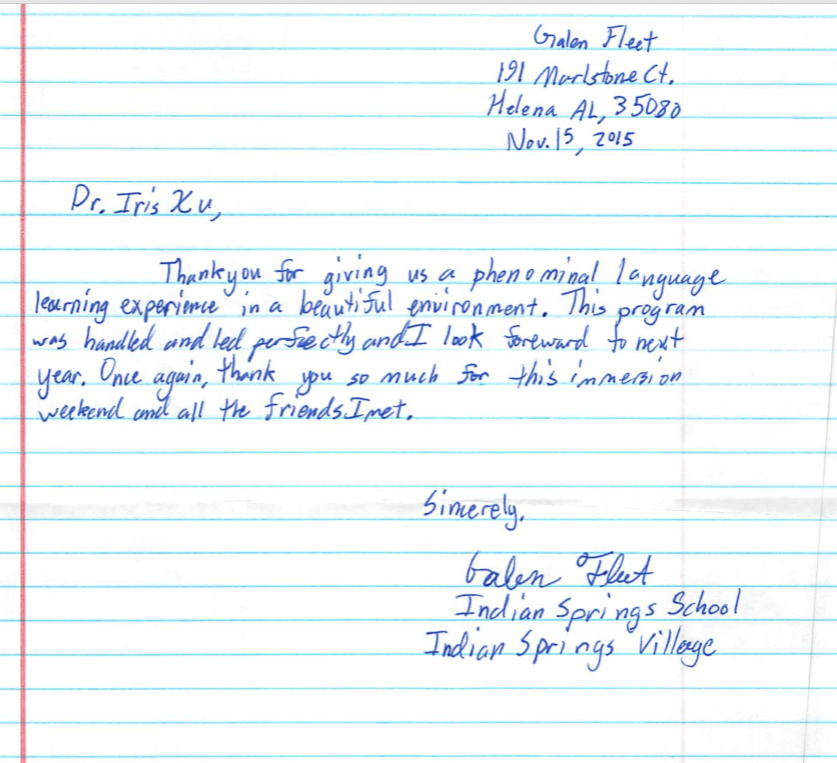 Galen Fleet
191 Marlstone Ct.
Helena AL, 35080
Nov. 15, 2015
Dr. Iris Xu,
Thankyou for giving us a phenominal language
learning experience in a beautiful environment. This program
was handled and led perfectly and I look foreward to next
year. Once again, thank you so much for this immersion
weekend and all the friends I met.
Sincerely,
Galen Fleet
Indian Springs School
Indian Springs Village